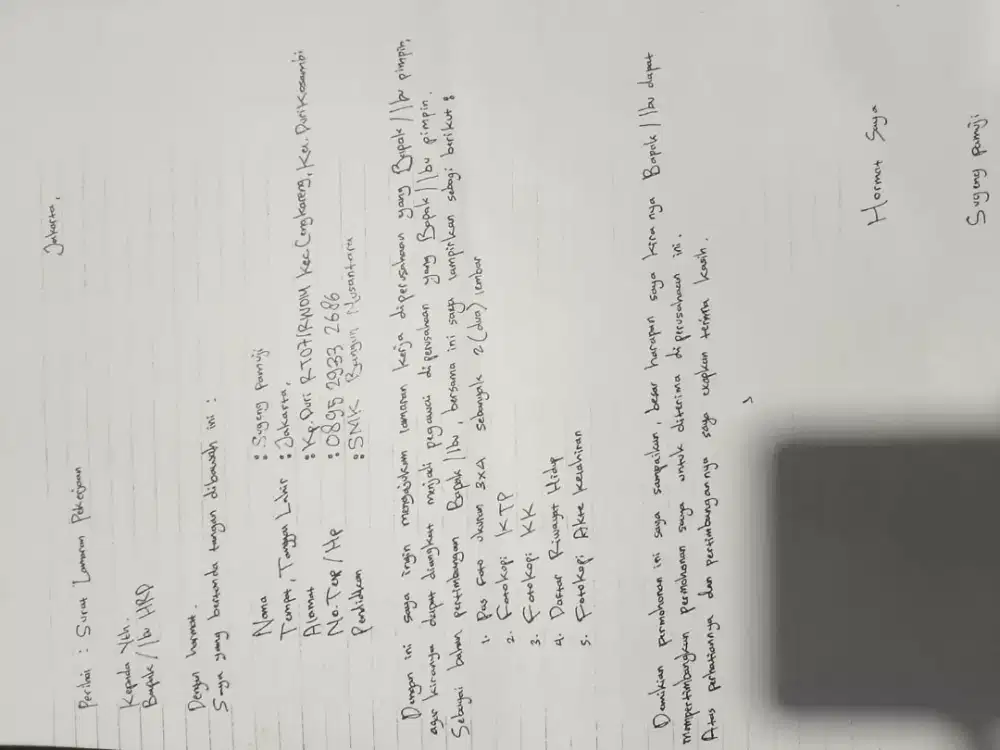 Jakarta,
Perihal : Surat Lamaran Pekerjaan
Kepada Yth.
Bapak / Ibu HRD
Dengan hormat.
Saya yang bertanda tangan dibawah ini :
Nama : Sugeng Pamuji
Tempat, Tanggal Lahir : Jakarta,
Alamat : Kp. Duri RT07/RW014 Kec. Cengkareng, Kel. Duri Kosambi
No. Telp / Hp : 0895 2933 2686
Pendidikan : SMK Bangun Nusantara
Dengan ini saya ingin mengajukan lamaran kerja diperusahaan yang Bapak / Ibu pimpin,
agar kiranya dapat diangkat menjadi pegawai diperusahaan yang Bapak / Ibu pimpin.
Sebagai bahan pertimbangan Bapak / Ibu, bersama ini saya lampirkan sebagi berikut :
1. Pas Foto ukuran 3x4 sebanyak 2 (dua) lembar
2. Fotokopi KTP
3. Fotokopi KK
4. Daftar Riwayat Hidup
5. Fotokopi Akte Kelahiran
Demikian permohonan ini saya sampaikan, besar harapan saya kira nya Bapak / Ibu dapat
mempertimbangkan permohonan saya untuk diterima diperusahaan ini.
Atas perhatiannya dan pertimbangannya saya ucapkan terima kasih.
Hormat Saya
Sugeng Pamuji